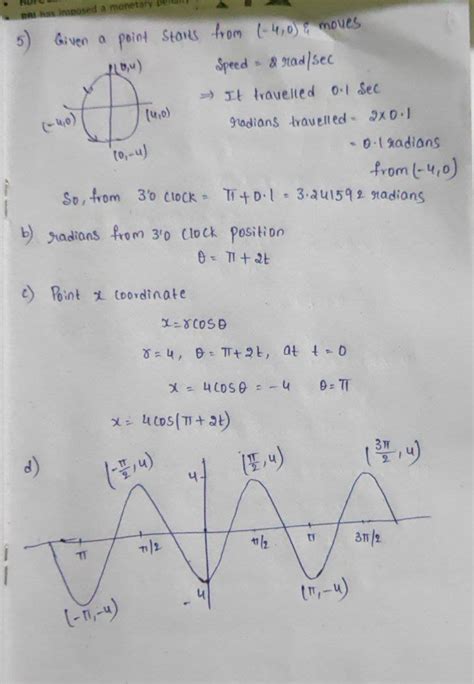 RBI has imposed a monetary penalty
5) Given a point starts from (-4,0) & moves
(0,4)
Speed = 2 rad/sec
(-4,0)
(4,0)
⇒ It travelled 0.1 Sec
radians travelled = 2x0.1
(0,-4)
= 0.1 radians
from (-4,0)
So, from 3'0 clock = π+0.1 = 3.241592 radians
b) radians from 3'0 clock position
θ = π+2t
c) Point x coordinate
x = rcosθ
r=4, θ=π+2t, at t=0
x = 4cosθ = -4 θ=π
x = 4cos(π+2t)
d)
(-π/2, 4)
4
(π/2, 4)
(3π/2, 4)
π
π/2
π/2
π
3π/2
(-π,-4)
-4
(π,-4)